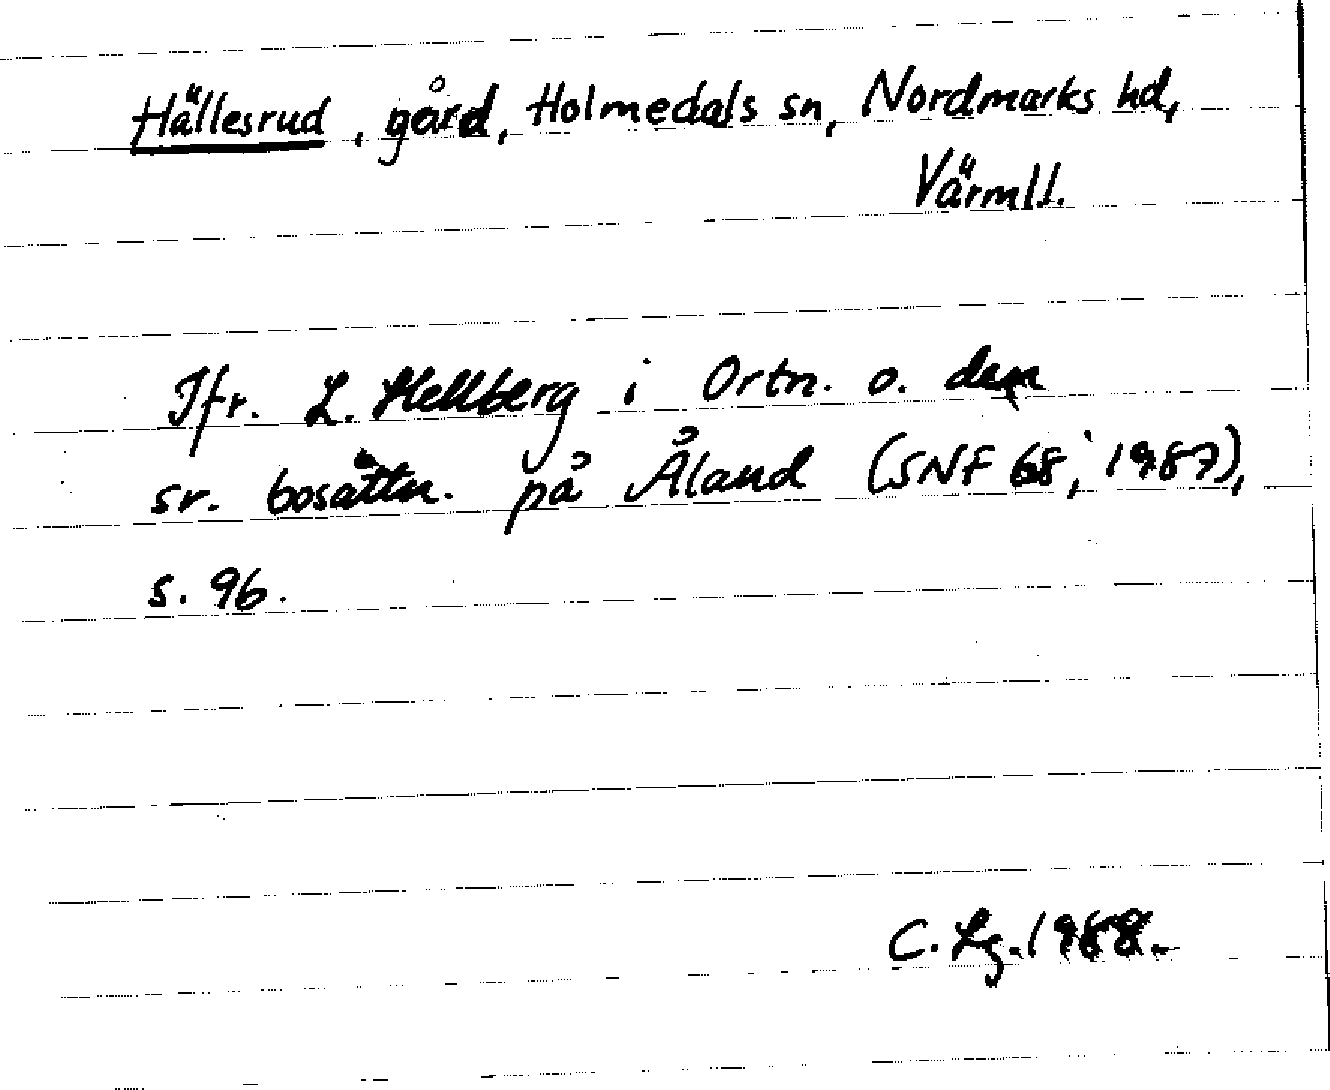 Hällesrud, gård, Holmedals sn, Nordmarks hd,
Värml l.
Jfr. L. Hellberg i Ortn. o. den
sv. bosättn. på Åland (SNF 68, 1987),
s. 96.
C. Lg. 1988.